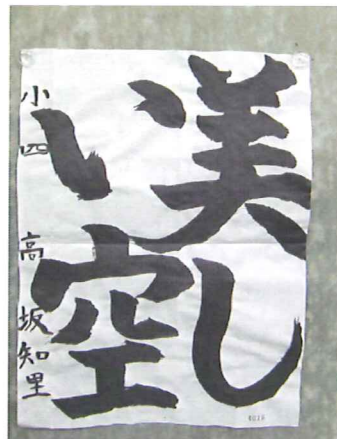 美し
い空
小四 高坂知里